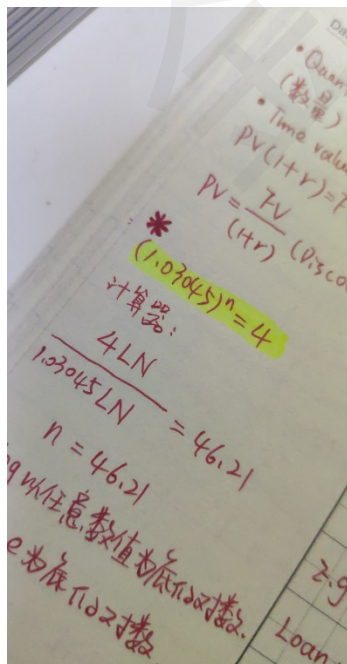 Da
• Quan
(数量)
• Time value
PV(1+r)=F
PV = FV/(1+r) (Disco
*
(1.03045)ⁿ=4
计算器:
4LN/1.03045LN = 46.21
n = 46.21
g 以任意数值为底的对数.
e为底的对数
2.9
Loan